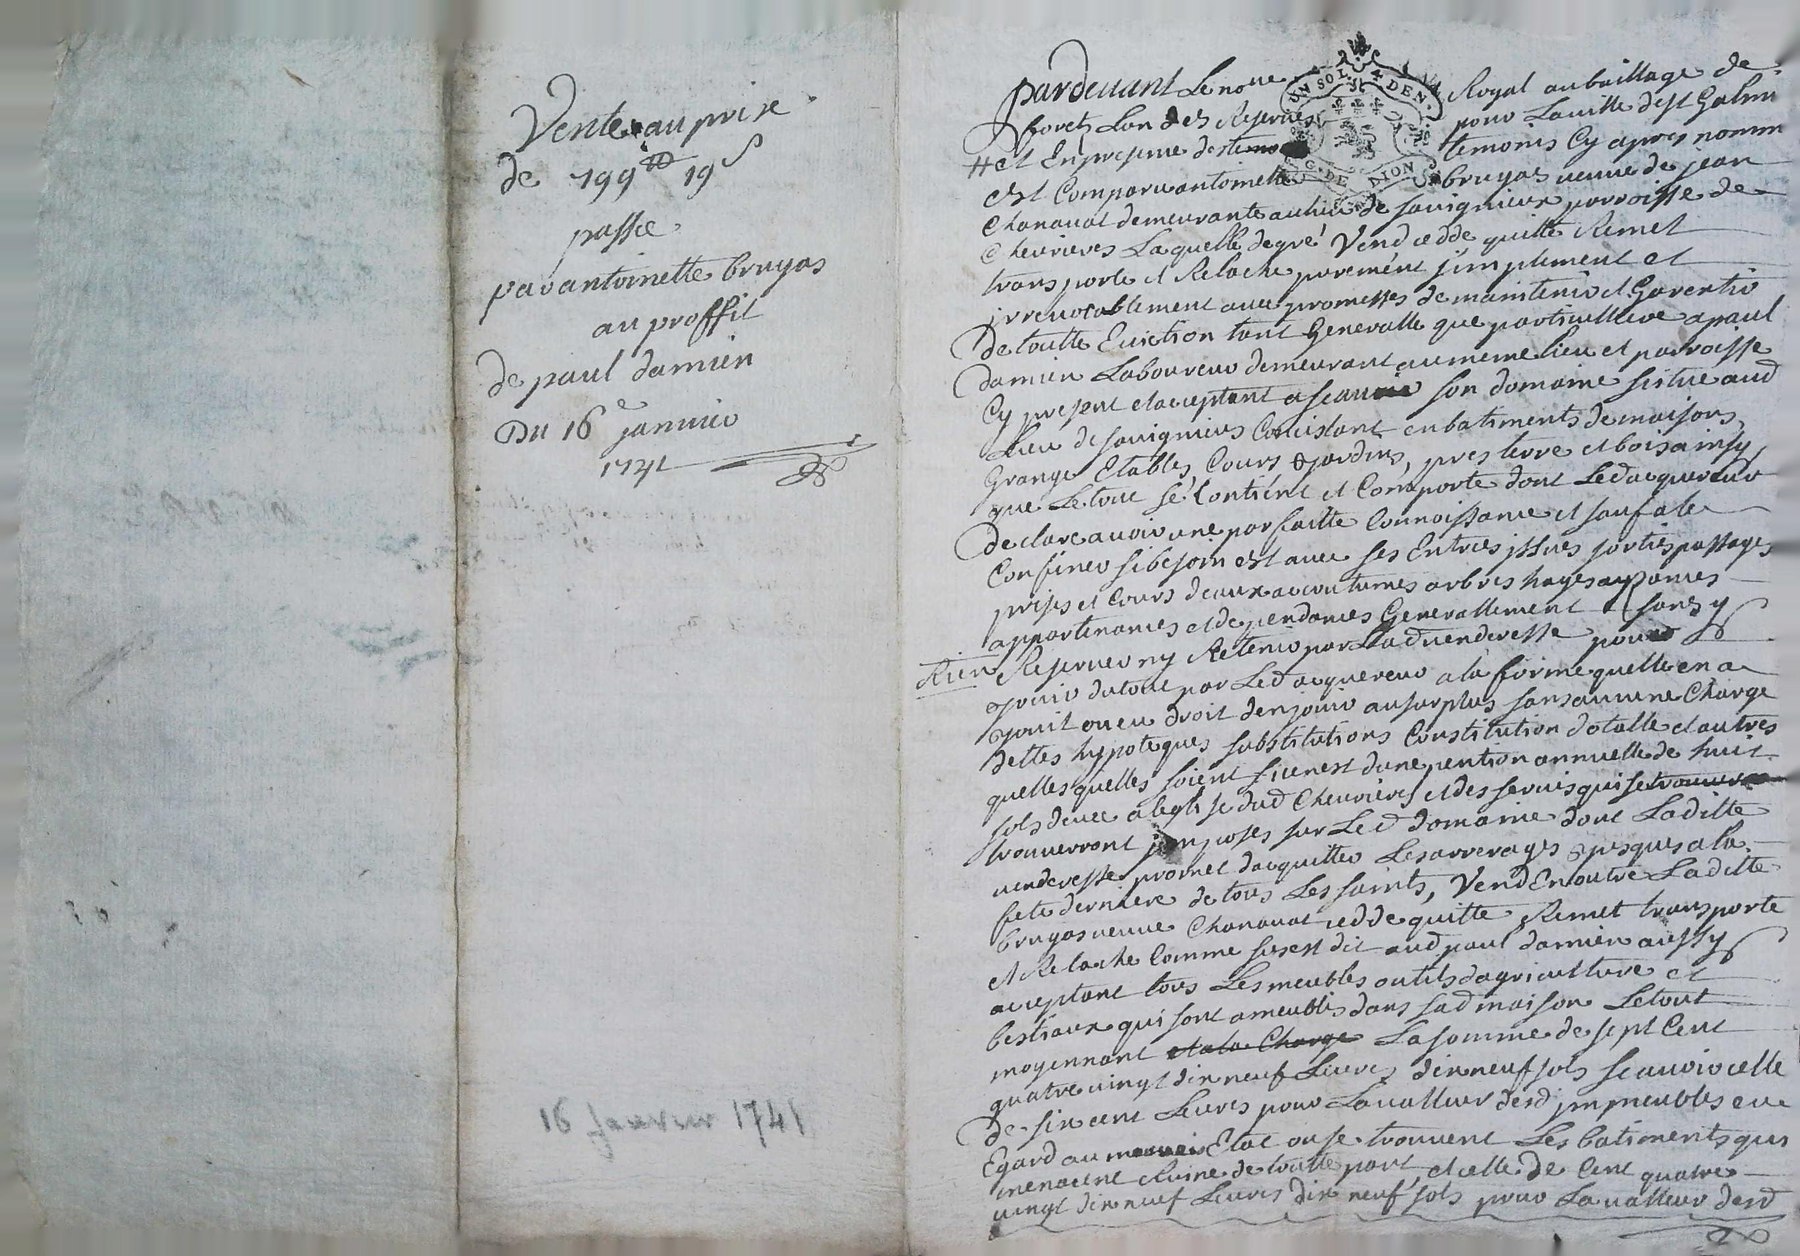 Vente au prix
de 799ᴸᴸ 19ˢ
passée
par antoinette bruyas
au proffit
de paul damien
Du 16ᵉ janvier
1741
16 Janvier 1741
UN SOL 4 DEN
G. DE LION
pardevant Le no.re Royal au baillage de
forets L'un des Reservés pour La ville de st Galm
et En presence des temoins Cy apres nomm
est Comparu antoinette bruyas veuve de jean
Chanavat demeurante au lieu de savigneux parroisse de
Chevrieres Laquelle de gré Vend cedde quitte Remet
transporte et Relache purement simplement et
irrevocablement avec promesses de maintenir et Garentir
de toutte Eviction tant Generalle que particulliere a paul
damien Laboureur demeurant au meme lieu et parroisse
Cy present et acceptant a scavoir son domaine sistué aud
Lieu de savigneux Concistant en batiments de maisons
Grange Etables Cours & jardins, pres terre et bois ainsy
que Le tout se Contient et Comporte dont Led acquereur
declare avoir une parfaitte Connoissance et sauf a le
Confiner si besoin est avec ses Entrées issues sorties passages
prises et Cours d'eaux accoutumés arbres hayes aysances
appartenances et dependances Generallement sans y
Rien Reserver ny Retenir par Lad venderesse pour
jouir du tout par Led acquereur a la forme quelle en a
jouit ou eu droit d'en jouir au surplus sans aucune Charge
dettes hypoteques substitutions Constitution dotalle et autres
quelles quelles soient si ce nest dune pention annuelle de huit
sols deue a leglise dud Chevrieres et des servis qui se trouver
trouverront imposés sur Le d domaine dont Laditte
venderesse promet dacquitter Les arrerages jusques a la
fete derniere de tous Les saints, Vend En outre Laditte
bruyas veuve Chanavat cedde quitte Remet transporte
et Relache Comme sus est dit aud paul damien aussy
acceptant tous Les meubles outils dagriculture et
bestiaux qui sont ameublis dans sad maison Le tout
moyennant et a la Charge La somme de sept Cent
quatre vingt dix neuf Livres dix neuf sols scavoir celle
de six cent Livres pour La valleur desd immeubles eu
Egard au mauvais Etat ou se trouvent Les batiments qui
menacent Ruine de toutte part, et celle de Cent quatre
vingt dix neuf Livres dix neuf sols pour La valleur desd